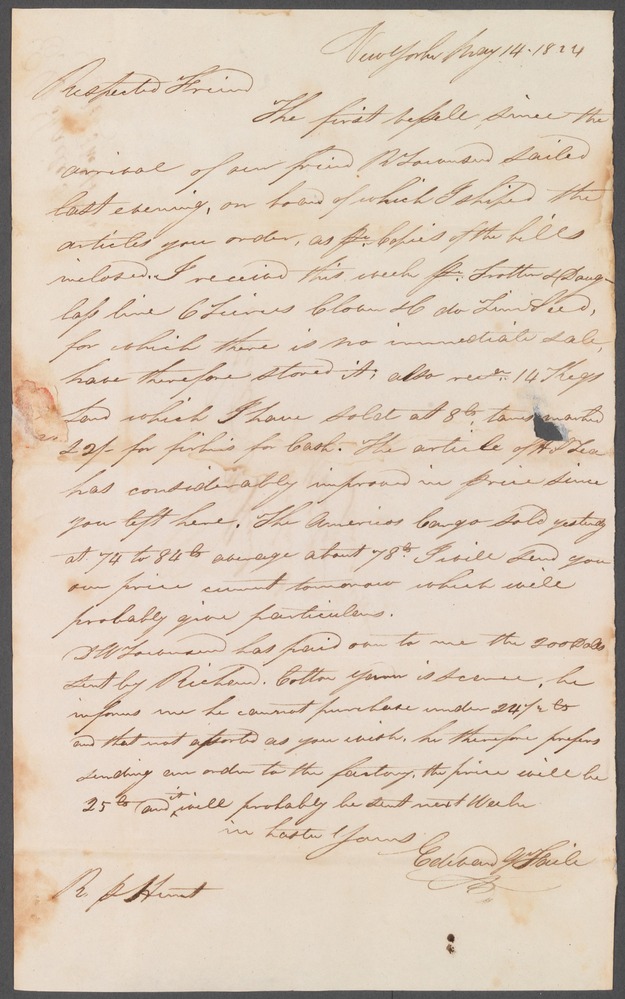 New York May 14. 1824
Respected Friend
The first vessell since the
arrival of our friend R Townsend sailed
last evening, on board of which I shiped the
articles you order, as pr. Copies of the bills
inclosed. I received this week pr. Trotter & Doug-
lass line 6 Tierces Clover & 6 do Seed,
for which there is no immediate sale,
have therefore stored it; also recd. 14 Kegs
Lard which I have sold at 8 cts. marked
22/- for for Cash. The article of Tea
has considerably improved in price since
you left here. The Americas Cargo sold yesterday
at 74 to 84 cts average about 78 cts. I will send you
our price current tomorrow which will
probably give particulars.
R W Townsend has paid over to me the 200 Dolls
sent by Richard. Cotton yarn is scarce, he
informs me he cannot purchase under 24 1/2 cts
and that not assorted as you wish, he therefore prefers
sending an order to the factory, the price will be
25 cts and it will probably be sent next Week
in haste Yours
Edward G Faile
R. P Hunt